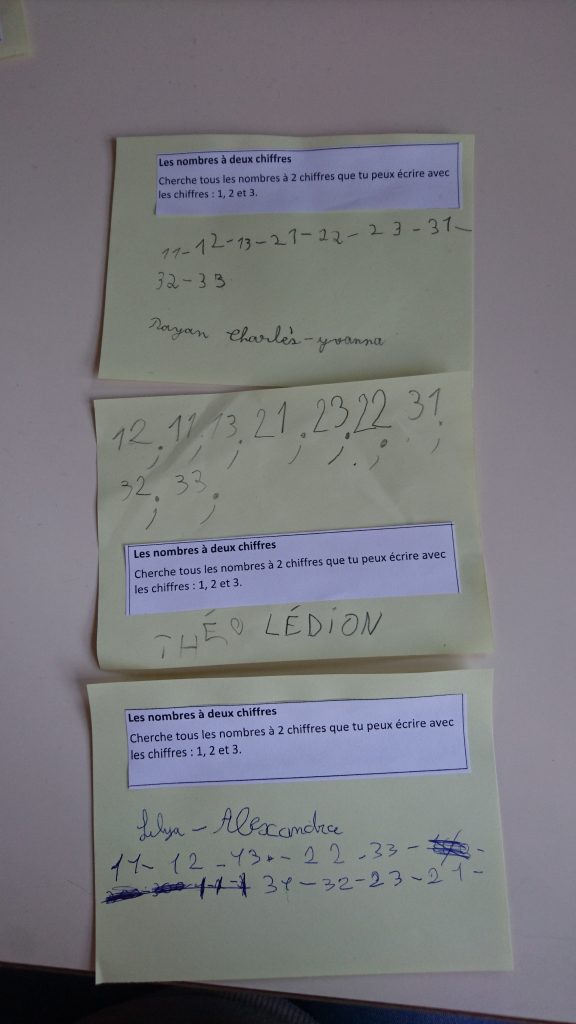 Les nombres à deux chiffres
Cherche tous les nombres à 2 chiffres que tu peux écrire avec
les chiffres : 1, 2 et 3.
11-12-13-21-22-23-31-
32-33
Rayan Charlès-yvanna
12; 11; 13; 21; 23; 22; 31;
32; 33;
Les nombres à deux chiffres
Cherche tous les nombres à 2 chiffres que tu peux écrire avec
les chiffres : 1, 2 et 3.
THÉO LÉDION
Les nombres à deux chiffres
Cherche tous les nombres à 2 chiffres que tu peux écrire avec
les chiffres : 1, 2 et 3.
Lilya - Alexandra
11- 12 -13 - 22 -33 -
31-32-23-21-